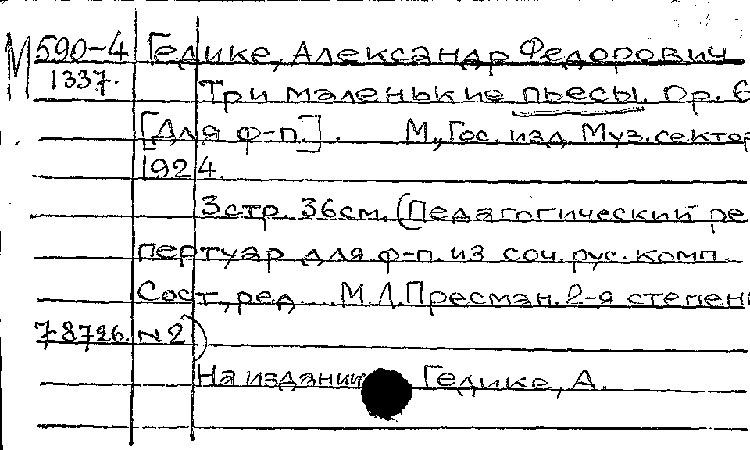 М 590-4 Гедике, Александр Федорович
1337. Три маленькие пьесы. Ор. 6
[Для ф-п.]. М., Гос. изд. Муз. сектор
1924.
3 стр. 36 см. (Педагогический ре
пертуар для ф-п. из соч. рус. комп.
Сост., ред. ... М.Л. Пресман. 2-я степень
7-8726. N2)
На издании Гедике, А.